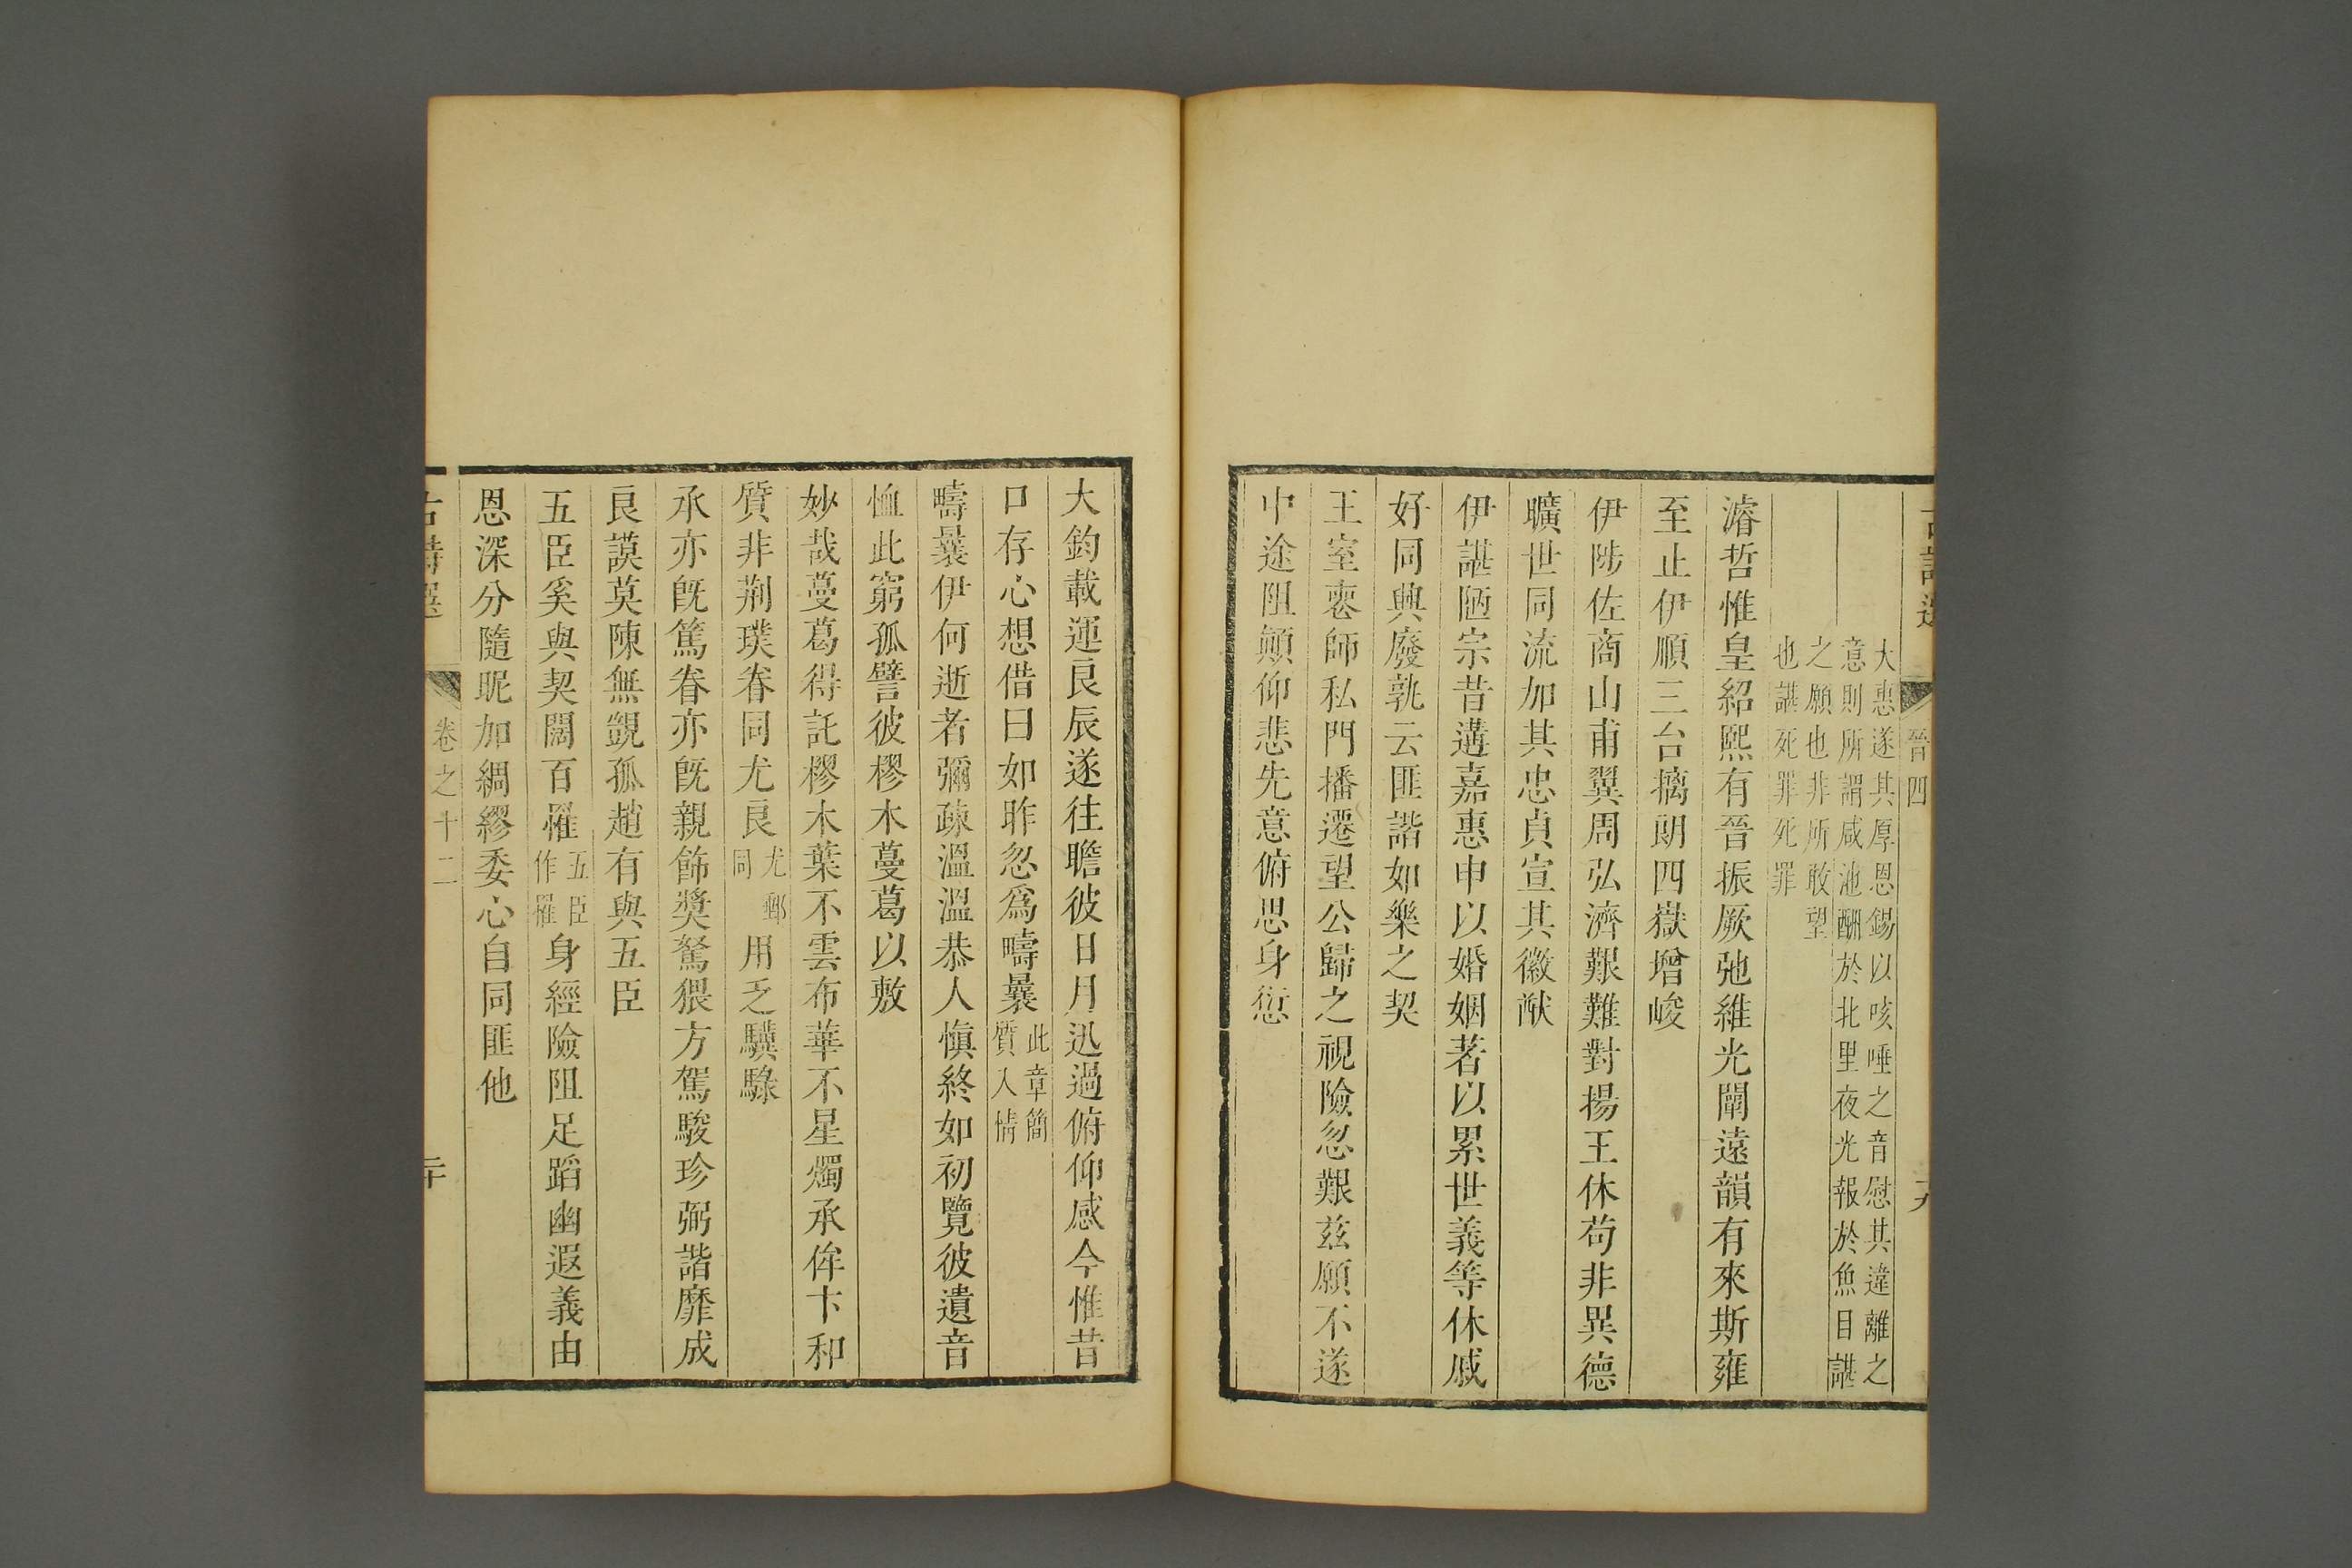 古詩選 晉四 十九
大惠遂其厚恩錫以咳唾之音慰其違離之
意則所謂咸池酬於北里夜光報於魚目諶
之願也非所敢望
也諶死罪死罪
濬哲惟皇紹熙有晉振厥弛維光闡遠韻有來斯雍
至止伊順三台摛朗四嶽增峻
伊陟佐商山甫翼周弘濟艱難對揚王休苟非異德
曠世同流加其忠貞宣其徽猷
伊諶陋宗昔遘嘉惠申以婚姻著以累世義等休戚
好同興廢孰云匪諧如樂之契
王室喪師私門播遷望公歸之視險忽艱玆願不遂
中途阻顛仰悲先意俯思身愆
大鈞載運良辰遂往瞻彼日月迅過俯仰感今惟昔
口存心想借曰如昨忽爲疇曩此章簡質入情
疇曩伊何逝者彌疎溫溫恭人愼終如初覽彼遺音
恤此窮孤譬彼樛木蔓葛以敷
妙哉蔓葛得託樛木葉不雲布華不星燭承侔卞和
質非荆璞眷同尤良尤郵同用乏驥騄
承亦旣篤眷亦旣親飾奬駑猥方駕駿珍弼諧靡成
良謨莫陳無覬狐趙有與五臣
五臣奚與契闊百罹五臣作罹身經險阻足蹈幽遐義由
恩深分隨昵加綢繆委心自同匪他
古詩選 卷之十二 二十